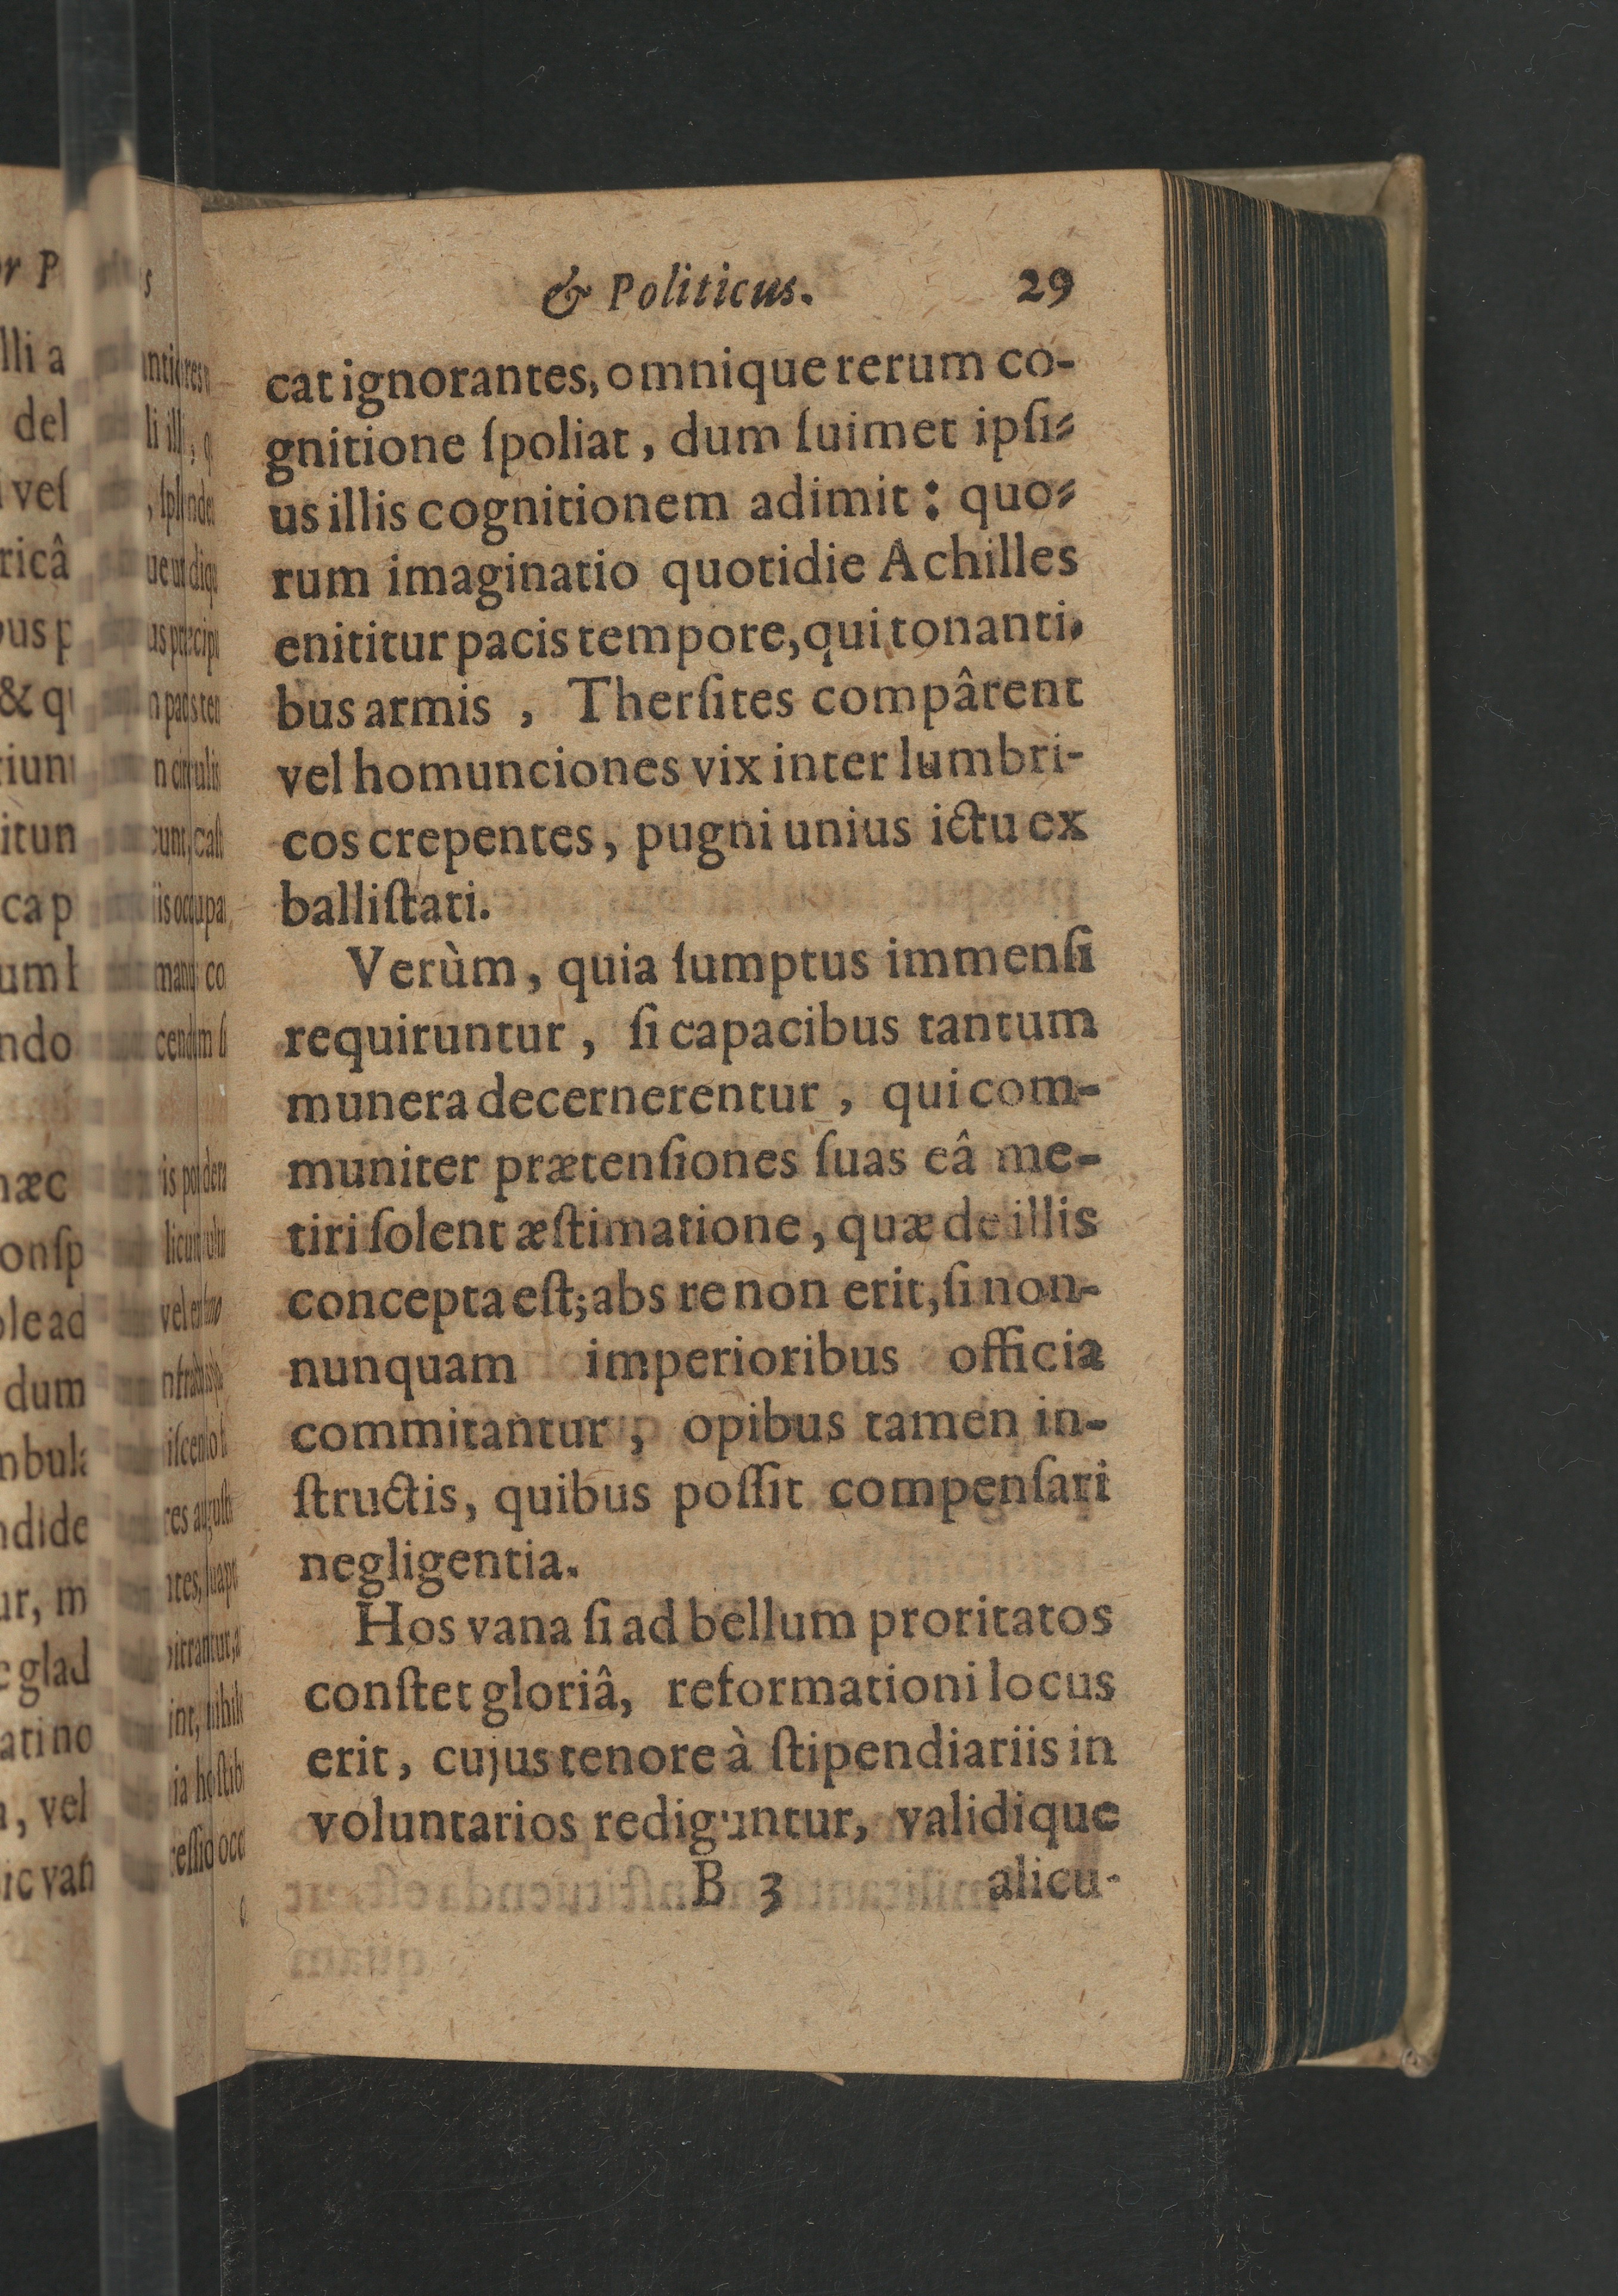 & Politicus. 29
cat ignorantes, omnique rerum co-
gnitione ſpoliat, dum ſuimet ipſi-
us illis cognitionem adimit: quo-
rum imaginatio quotidie Achilles
enititur pacis tempore, qui tonanti-
bus armis, Therſites compârent
vel homunciones vix inter lumbri-
cos crepentes, pugni unius ictu ex
balliſtati.
Verùm, quia ſumptus immenſi
requiruntur, ſi capacibus tantum
munera decernerentur, qui com-
muniter prætenſiones ſuas eâ me-
tiri ſolent æſtimatione, quæ de illis
concepta eſt; abs re non erit, ſi non-
nunquam imperioribus officia
commitantur, opibus tamen in-
ſtructis, quibus poſſit compenſari
negligentia.
Hos vana ſi ad bellum proritatos
conſtet gloriâ, reformationi locus
erit, cujus tenore à ſtipendiariis in
voluntarios rediguntur, validique
B 3 alicu-